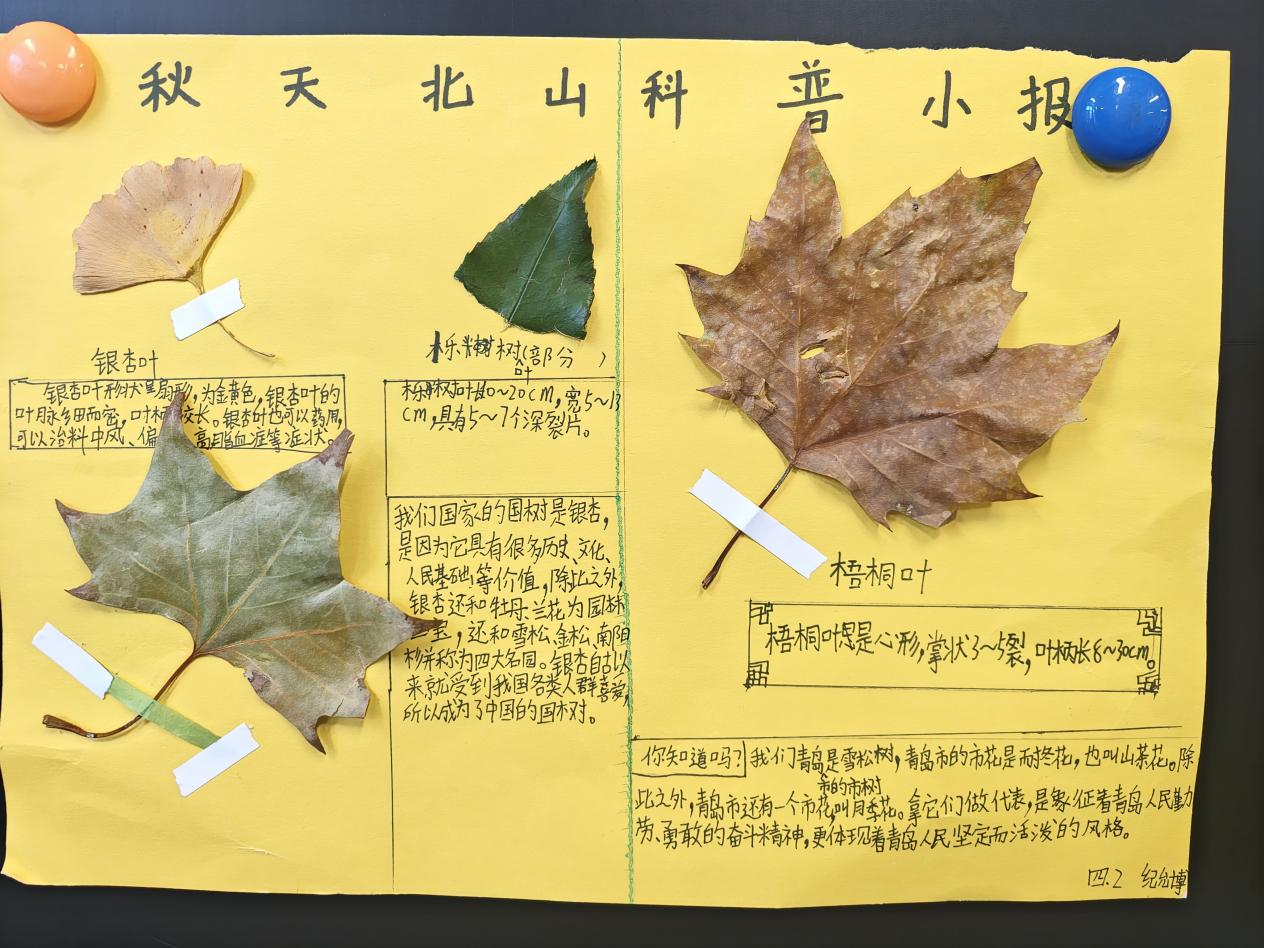 秋天北山科普小报
银杏叶
银杏叶形状呈扇形,为金黄色,银杏叶的
叶脉细而密,叶柄较长。银杏叶也可以药用,
可以治料中风、偏 高脂血症等症状。
栎树叶(部分)
栎树叶长10~20cm,宽5~13
cm,具有5~7个深裂片。
我们国家的国树是银杏,
是因为它具有很多历史、文化、
人民基础等价值,除此之外,
银杏还和牡丹、兰花为园林
三宝,还和雪松、金松、南阳
杉并称为四大名园。银杏自古以
来就受到我国各类人群喜爱,
所以成为了中国的国树。
梧桐叶
梧桐叶是心形,掌状3~5裂,叶柄长8~30cm。
你知道吗?我们青岛市的市树是雪松树,青岛市的市花是耐冬花,也叫山茶花。除
此之外,青岛市还有一个市花,叫月季花。拿它们做代表,是象征着青岛人民勤
劳、勇敢的奋斗精神,更体现着青岛人民坚定而活泼的风格。
四.2 纪 博